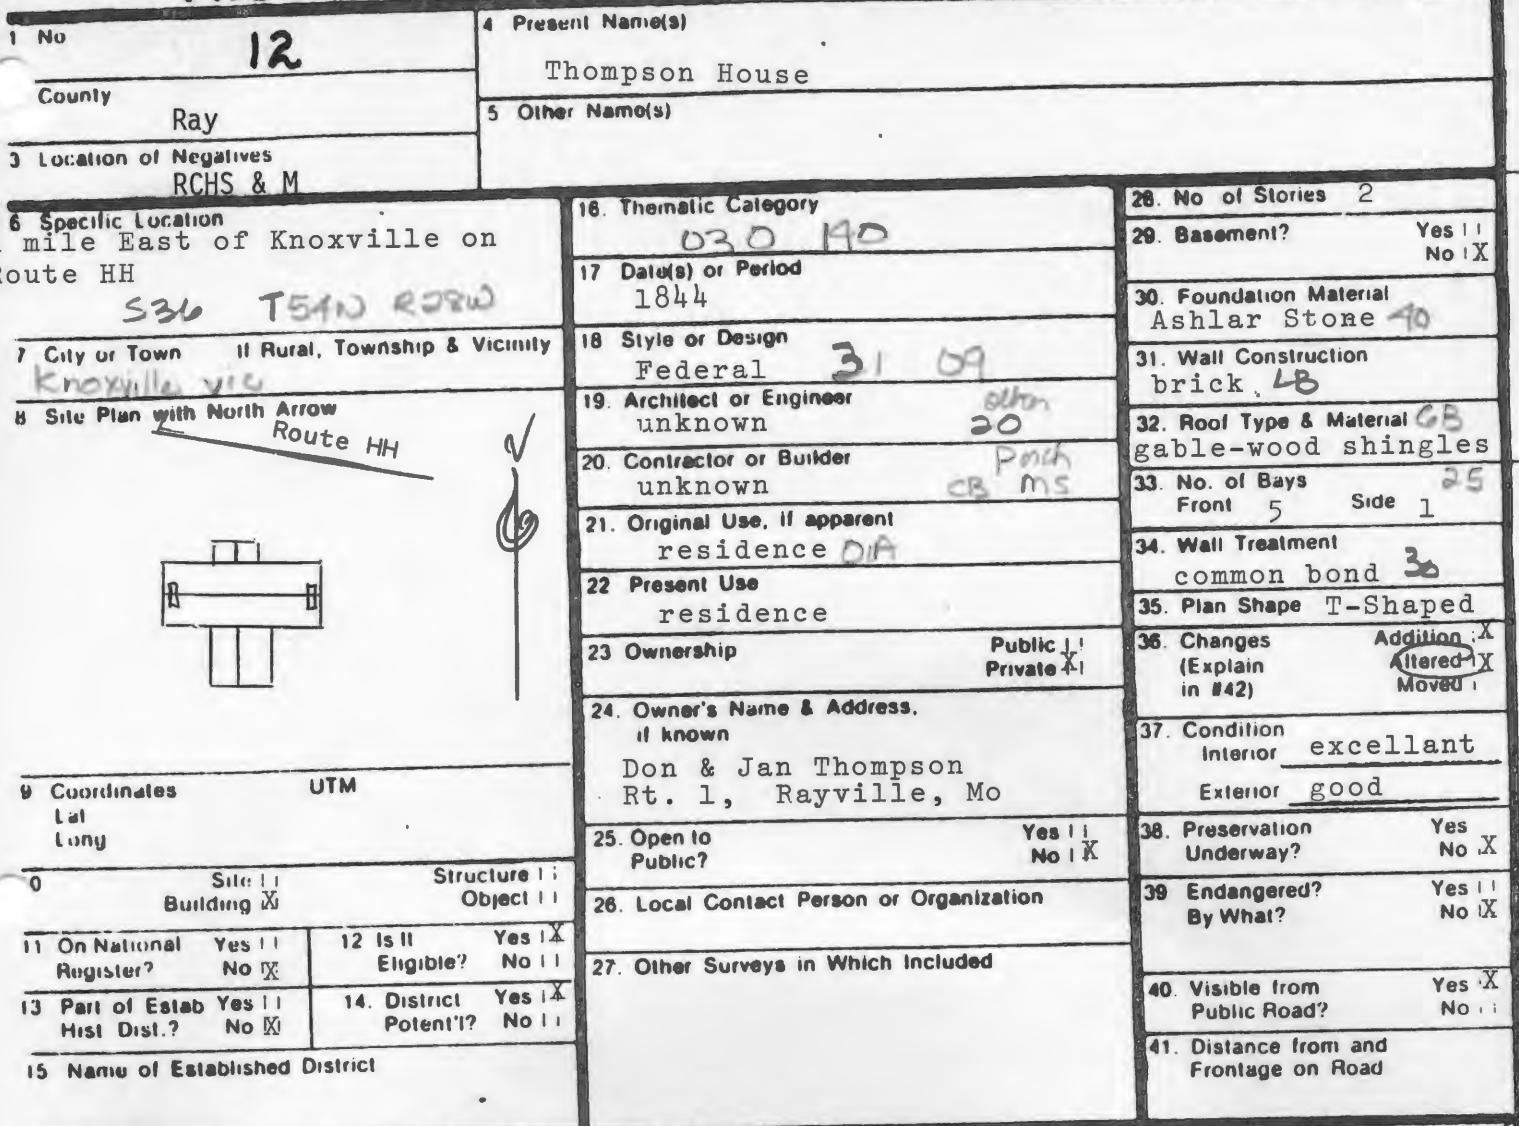 1 No
12
County
Ray
3 Location of Negatives
RCHS & M
4 Present Name(s)
Thompson House
5 Other Name(s)
6 Specific Location
mile East of Knoxville on
Route HH
S36 T54N R28W
7 City or Town If Rural, Township & Vicinity
Knoxville vic
8 Site Plan with North Arrow
Route HH
9 Coordinates UTM
Lat
Long
0 Site Structure
Building X Object
11 On National Register? Yes
No X
12 Is It Eligible? Yes X
No
13 Part of Estab Hist Dist.? Yes
No X
14. District Potent'l? Yes X
No
15 Name of Established District
16. Thematic Category
030 190
17 Date(s) or Period
1844
18 Style or Design
Federal 31 09
19. Architect or Engineer
unknown 20
20. Contractor or Builder Porch
unknown CB MS
21. Original Use, if apparent
residence 01A
22 Present Use
residence
23 Ownership Public
Private X
24. Owner's Name & Address,
if known
Don & Jan Thompson
Rt. 1, Rayville, Mo
25. Open to Public? Yes
No X
26. Local Contact Person or Organization
27. Other Surveys in Which Included
28. No of Stories 2
29. Basement? Yes
No X
30. Foundation Material
Ashlar Stone 40
31. Wall Construction
brick
32. Roof Type & Material GB
gable-wood shingles
33. No. of Bays 25
Front 5 Side 1
34. Wall Treatment
common bond 30
35. Plan Shape T-Shaped
36. Changes Addition X
(Explain Altered X
in #42) Moved
37. Condition
Interior excellant
Exterior good
38. Preservation Yes
Underway? No X
39 Endangered? Yes
By What? No X
40. Visible from Yes X
Public Road? No
41. Distance from and
Frontage on Road